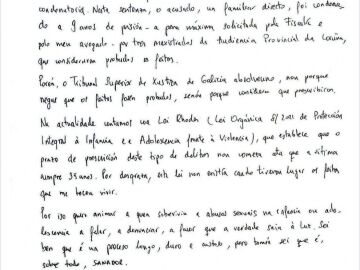 condenatoria. Nesta sentenza, o acusado, un familiar directo, foi condena-
do a 9 anos de prisión - a pena máxima solicitada pola Fiscalía e
polo meu avogado - por tres maxistrados da Audiencia Provincial da Coruña,
que consideraron probados os feitos.
Porén, o Tribunal Superior de Xustiza de Galicia absolveuno, non porque
negue que os feitos foran probados, senón porque considera que prescribiron.
Na actualidade contamos coa Lei Rhodes (Lei Orgánica 8/2021 de Protección
Integral á Infancia e a Adolescencia fronte á Violencia), que establece que o
prazo de prescrición deste tipo de delitos non comeza ata que a vítima
cumpre 35 anos. Por desgraza, esta lei non existía cando tiveron lugar os feitos
que me tocou vivir.
Por iso quero animar a quen sobreviviu a abusos sexuais na infancia ou ado-
lescencia a falar, a denunciar, a facer que a verdade saia á luz. Sei
ben que é un proceso longo, duro e custoso, pero tamén sei que é,
sobre todo, SANADOR.